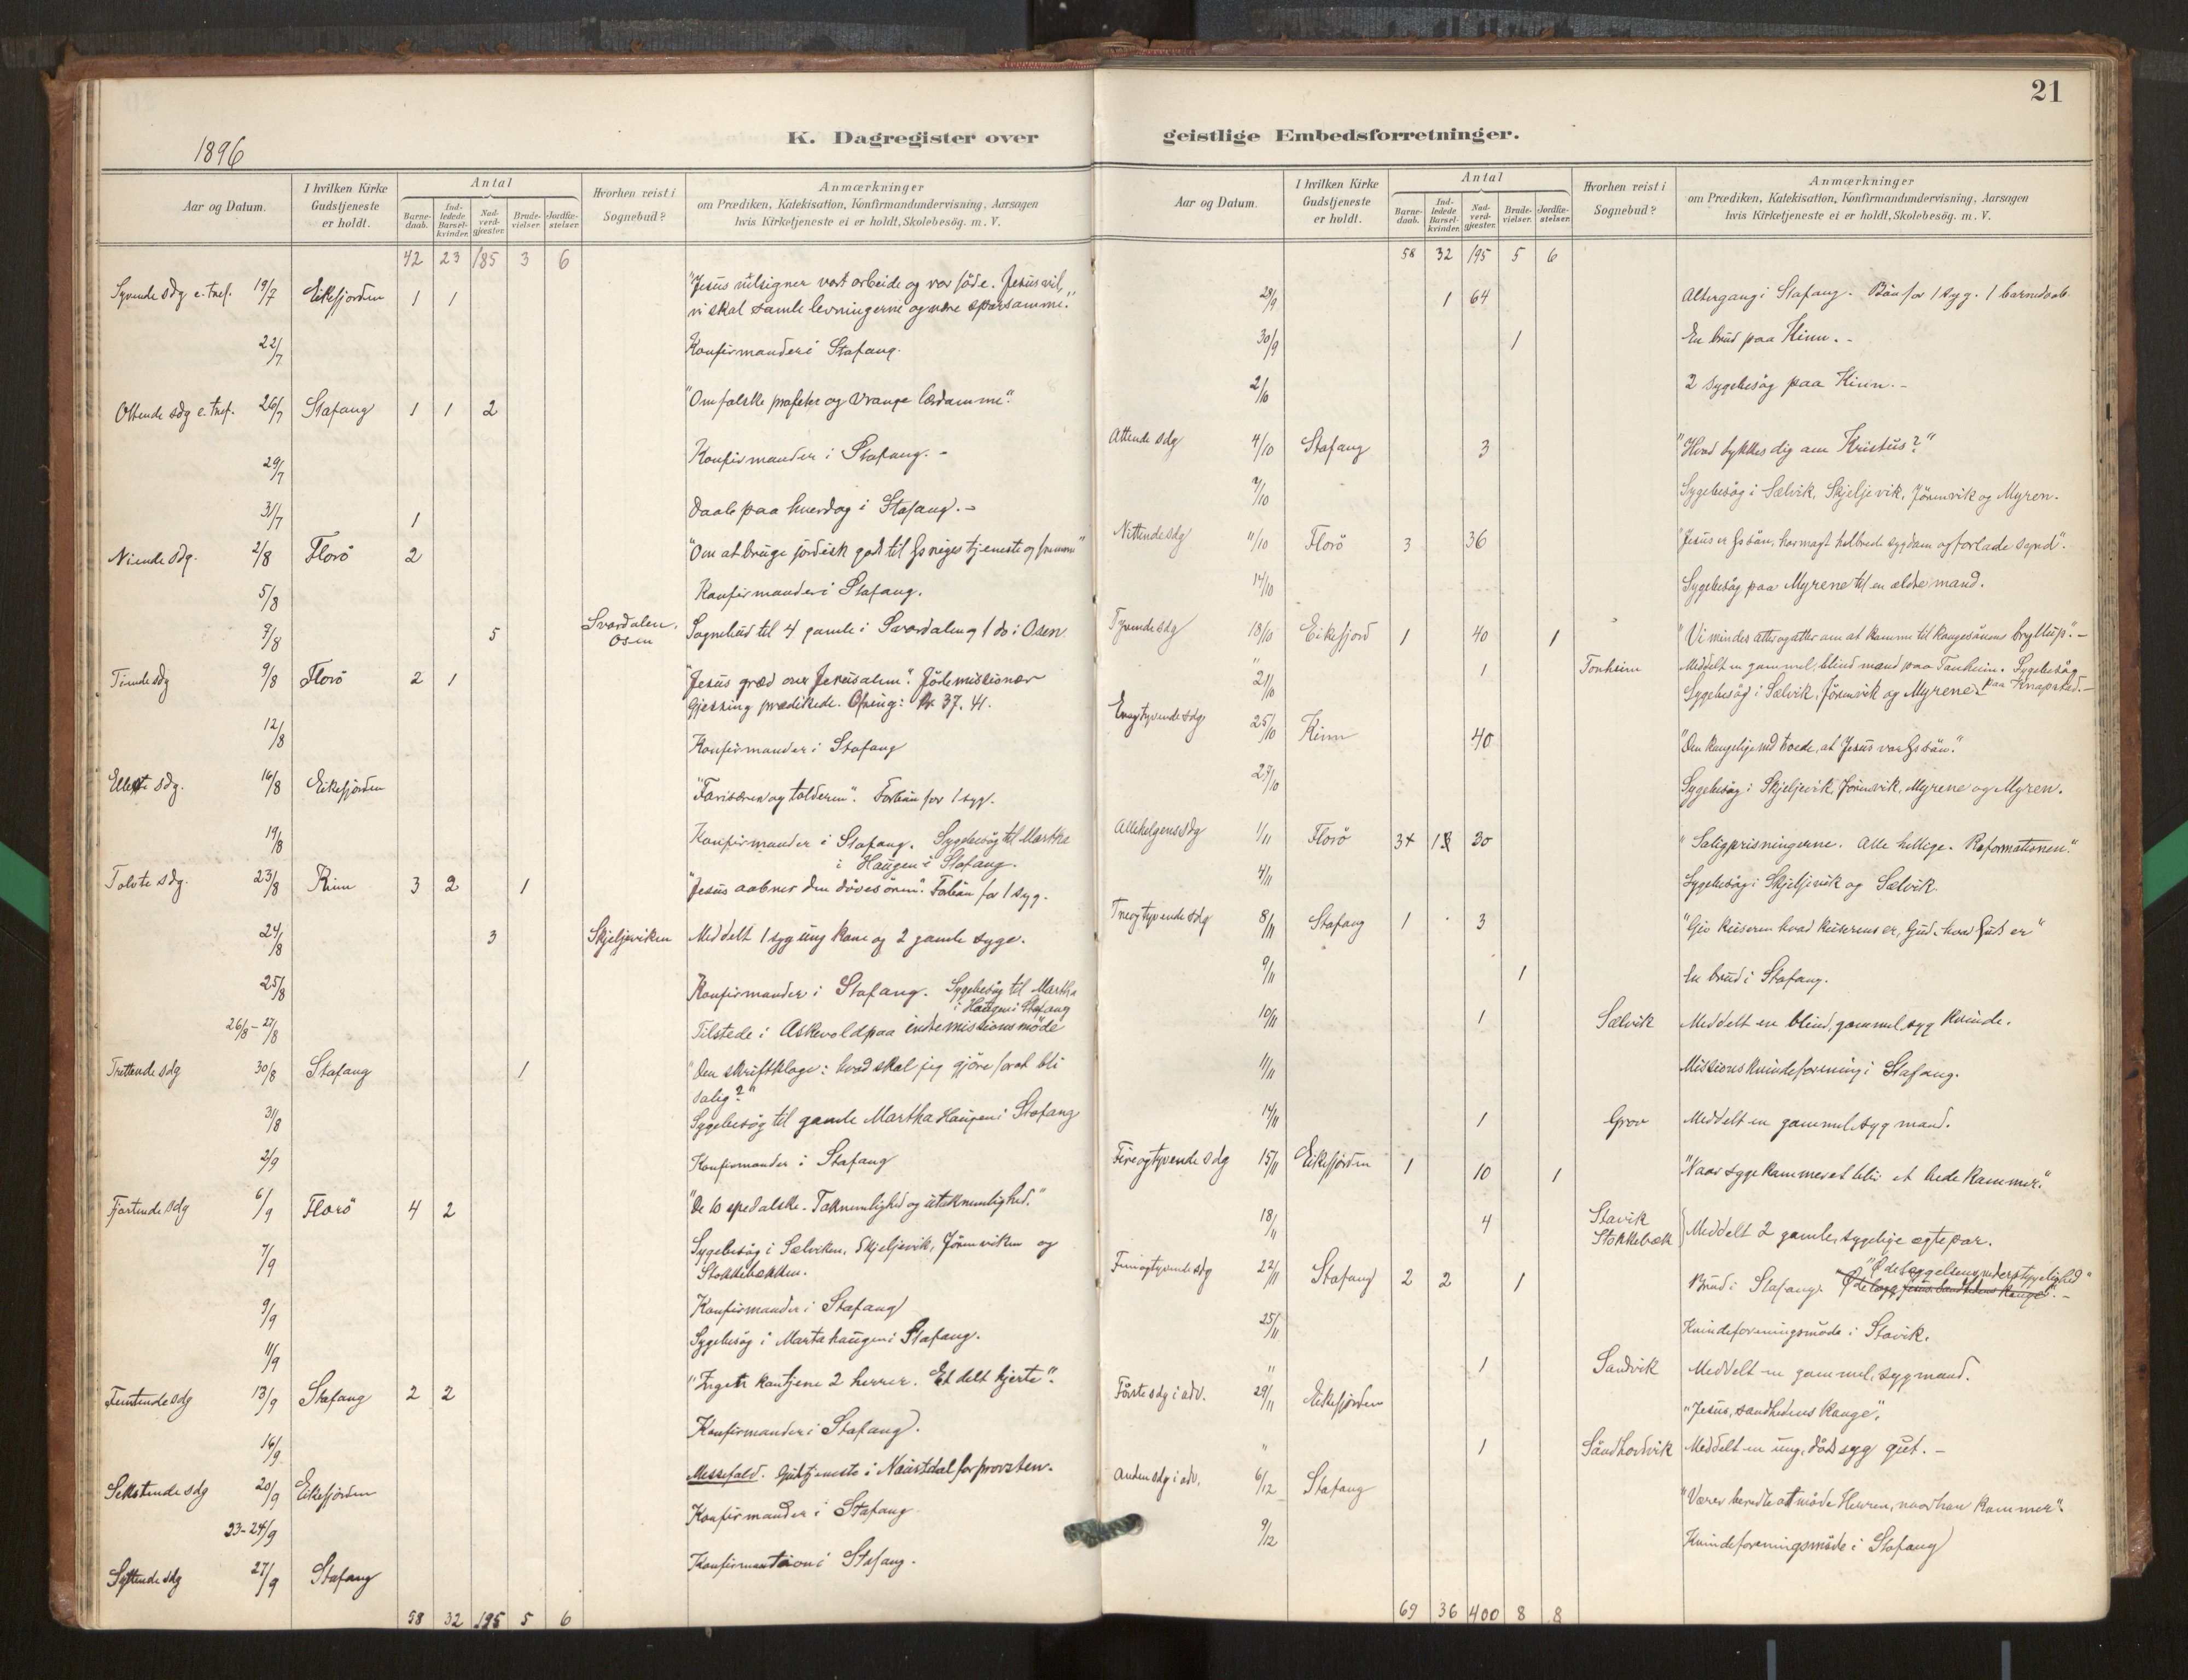 21
K. Dagregister over geistlige Embedsforretninger.
1896
Aar og Datum.
I hvilken Kirke Gudstjeneste er holdt.
Antal
Barne-daab.
Ind-ledede Barsel-kvinder.
Nad-verd-gjæster.
Brude-vielser.
Jordfæ-stelser.
Hvorhen reist i Sognebud?
Anmærkninger
om Prædiken, Katekisation, Konfirmandundervisning, Aarsagen
hvis Kirketjeneste ei er holdt, Skolebesög. m. V.
42 23 185 3 6
Syvende sdg e. tref. 19/7 Eikefjorden 1 1 "Jesus velsigner vort arbeide og vor føde. Jesus vil,
vi skal samle levningerne og være sparsomme."
22/7 Konfirmander i Stafang.
Ottende sdg e. tref. 26/7 Stafang 1 1 2 "Om falske profeter og vrange lærdomme".
29/7 Konfirmander i Stafang. -
31/7 1 Daab paa hverdag i Stafang. -
Niende sdg. 2/8 Florö 2 "Om at bruge jordisk gods til Gs riges tjeneste og fremme"
5/8 Konfirmander i Stafang.
7/8 5 Svardalen, Osen Sognebud til 4 gamle i Svardalen og 1 do i Osen.
Tiende sdg 9/8 Florö 2 1 "Jesus græd over Jerusalem". Jødemissionær
Gjessing prædikede. Ofring: kr. 37.41.
12/8 Konfirmander i Stafang
Ellevte sdg. 16/8 Eikefjorden "Farisæeren og tolderen". Forbøn for 1 syg.
19/8 Konfirmander i Stafang. Sygebesøg til Martha
i Haugen i Stafang.
Tolvte sdg. 23/8 Kinn 3 2 1 "Jesus aabner den døves øren". Forbøn for 1 syg.
24/8 3 Skjeljeviken Meddelt 1 syg ung kone og 2 gamle syge.
25/8 Konfirmander i Stafang. Sygebesøg til Martha
i Haugen i Stafang
26/8 - 27/8 Tilstede i Askevold paa indremissionsmøde
Trettende sdg 30/8 Stafang 1 "Den skriftkloge: hvad skal jeg gjøre for at bli
salig?"
31/8 Sygebesøg til gamle Martha Haugen i Stafang
2/9 Konfirmander i Stafang
Fjortende sdg 6/9 Florö 4 2 "De 10 spedalske. Taknemlighed og utaknemlighed."
7/9 Sygebesøg i Sælviken, Skjeljevik, Jörenviken og
Stokkebækken.
9/9 Konfirmander i Stafang
11/9 Sygebesøg i Marta haugen i Stafang.
Femtende sdg 13/9 Stafang 2 2 "Ingen kan tjene 2 herrer. Et delt hjerte".
16/9 Konfirmander i Stafang.
Sekstende sdg 20/9 Eikefjorden Messefald. Gudstjeneste i Naustdal for provsten.
23-24/9 Konfirmander i Stafang
Syttende sdg 27/9 Stafang Konfirmation i Stafang.
58 32 195 5 6
Aar og Datum.
I hvilken Kirke Gudstjeneste er holdt.
Antal
Barne-daab.
Ind-ledede Barsel-kvinder.
Nad-verd-gjæster.
Brude-vielser.
Jordfæ-stelser.
Hvorhen reist i Sognebud?
Anmærkninger
om Prædiken, Katekisation, Konfirmandundervisning, Aarsagen
hvis Kirketjeneste ei er holdt, Skolebesög. m. V.
58 32 195 5 6
28/9 1 64 Altergang i Stafang. Bön for 1 syg. 1 barnedaab
30/9 1 En brud paa Kinn. -
2/10 2 sygebesøg paa Kinn. -
Attende sdg 4/10 Stafang 3 "Hvad tykkes dig om Kristus?"
7/10 Sygebesøg i Sælvik, Skjeljevik, Jörenvik og Myren.
Nittende sdg 11/10 Florö 3 36 "Jesus er Gs søn, har magt helbrede sygdom og forlade synd".
14/10 Sygebesøg paa Myrene til en ældre mand.
Tyvende sdg 18/10 Eikefjord 1 40 1 "Vi mindes atter og atter om at komme til kongesønnens bryllup". -
" 1 Tonheim Meddelt en gammel, blind mand paa Tonheim. Sygebesøg
paa Knapstad. -
21/10 Sygebesøg i Sælvik, Jörenvik og Myrene.
Enogtyvende sdg 25/10 Kinn 40 "Den kongelige md troede, at Jesus var Gs søn."
27/10 Sygebesøg i Skjeljevik, Jörenvik, Myrene og Myren.
Allehelgens sdg 1/11 Florö 3+ 1 30 "Saligprisningerne. Alle hellige. Reformationen."
4/11 Sygebesøg i Skjeljevik og Sælvik.
Treogtyvende sdg 8/11 Stafang 1 3 "Giv keiseren hvad keiserens er, Gud hvad Guds er"
9/11 1 En brud i Stafang.
10/11 1 Sælvik Meddelt en blind, gammel, syg kvinde.
11/11 Missionskvindeforening i Stafang.
14/11 1 Grov Meddelt en gammel syg mand.
Fireogtyvende sdg 15/11 Eikefjorden 1 10 1 "Naar sygekammeret blir et bedekammer."
18/11 4 Stavik Stokkebæk Meddelt 2 gamle, sygelige ægtepar.
Femogtyvende sdg 22/11 Stafang 2 2 1 Brud i Stafang. "Ødelæggelsens vederstyggelighed"
25/11 Kvindeforeningsmøde i Stavik.
" 1 Sandvik Meddelt en gammel, syg mand.
Første sdg i adv. 29/11 Eikefjorden "Jesus, sandhedens konge".
" 1 Sandhovdvik Meddelt en ung, dødssyg gut. -
Anden sdg i adv. 6/12 Stafang "Værer beredte at møde Herren, naar han kommer".
9/12 Kvindeforeningsmøde i Stafang
69 36 400 8 8